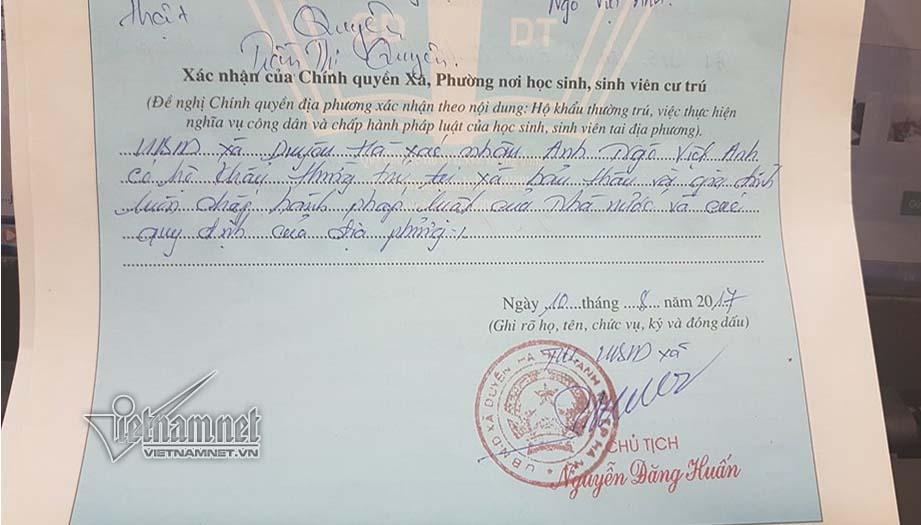 Ngô Việt Anh
thật Quyên
DT
Trần Thị Quyên.
Xác nhận của Chính quyền Xã, Phường nơi học sinh, sinh viên cư trú
(Đề nghị Chính quyền địa phương xác nhận theo nội dung: Hộ khẩu thường trú, việc thực hiện
nghĩa vụ công dân và chấp hành pháp luật của học sinh, sinh viên tại địa phương).
UBND xã Duyên Hà xác nhận Anh Ngô Việt Anh
có hộ khẩu thường trú tại xã bản thân và gia đình
luôn chấp hành pháp luật của Nhà nước và các
quy định của địa phương.
Ngày 10 tháng 8 năm 2017
(Ghi rõ họ, tên, chức vụ, ký và đóng dấu)
TM UBND xã
U.B.N.D XÃ DUYÊN HÀ
CHỦ TỊCH
Nguyễn Đăng Huấn
vietnamnet
VIETNAMNET.VN